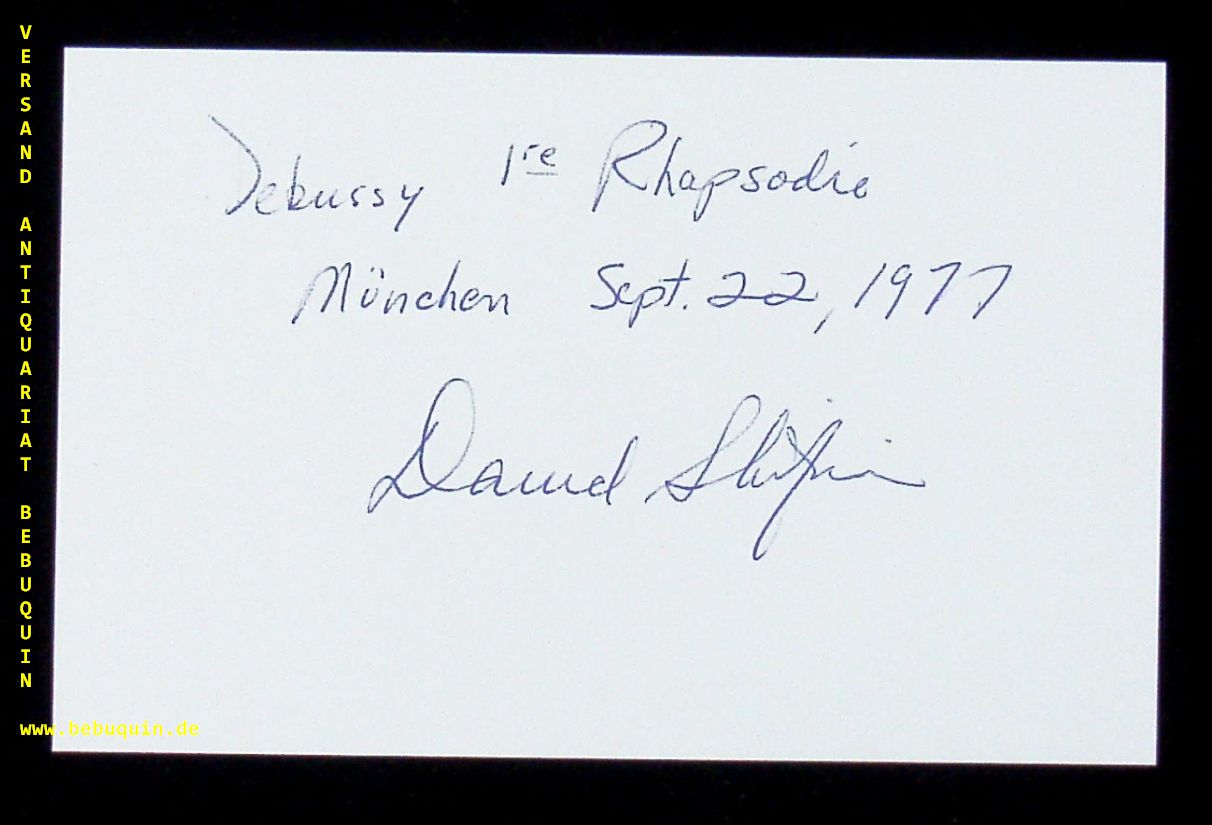 VERSAND ANTIQUARIAT BEBUQUIN
Debussy 1re Rhapsodie
München Sept. 22, 1977
Daniel Shifrin
www.bebuquin.de